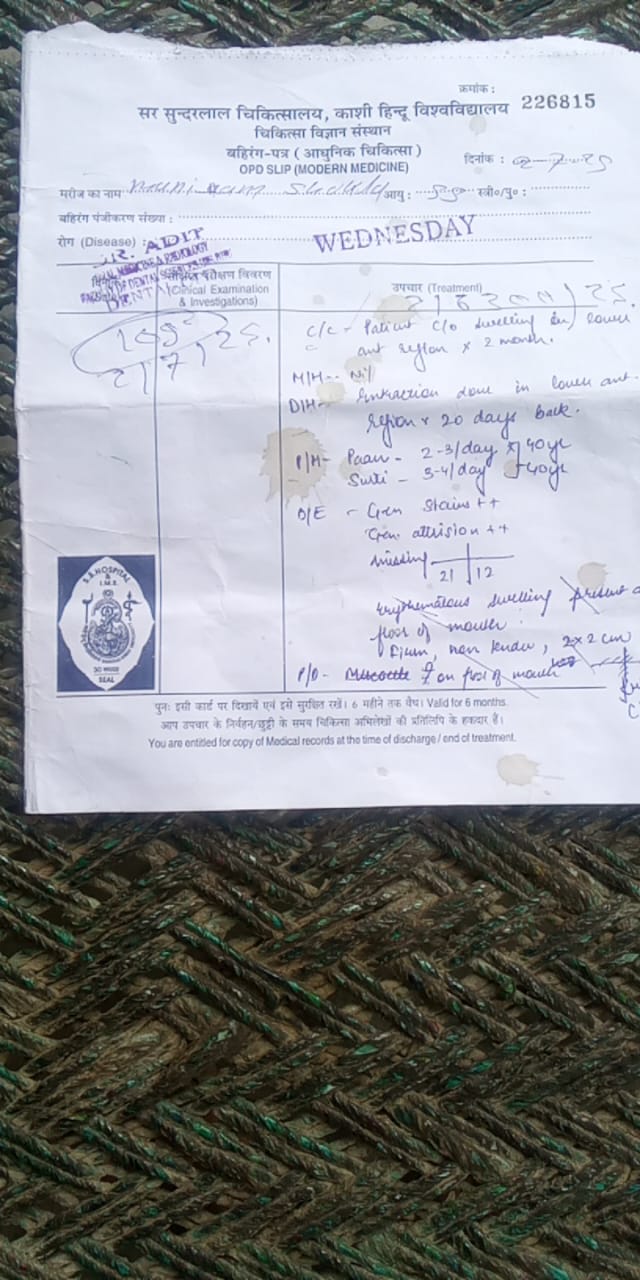 क्रमांक :
सर सुन्दरलाल चिकित्सालय, काशी हिन्दू विश्वविद्यालय 226815
चिकित्सा विज्ञान संस्थान
बहिरंग-पत्र ( आधुनिक चिकित्सा )
OPD SLIP (MODERN MEDICINE)
दिनांक :
मरीज का नाम आयु : स्त्री०/पु० :
बहिरंग पंजीकरण संख्या :
रोग (Disease) WEDNESDAY
DR. ADIT
परीक्षण विवरण
(Clinical Examination
& Investigations)
उपचार (Treatment)
2/7/25.
C/C - Patient C/o swelling in lower
ant region x 2 month.
M/H - Nil
D/H - Extraction done in lower ant.
region x 20 days back.
P/H - Paan - 2-3/day x 40yr
Surti - 3-4/day 40yr
O/E - Gen stains ++
Gen. attrision ++
missing
21 | 12
erythematous swelling present
floor of mouth.
Firm, non tender, 2x2 cm
P/D - on floor of mouth
S.S.HOSPITAL
&
I.M.S.
SEAL
पुनः इसी कार्ड पर दिखायें एवं इसे सुरक्षित रखें। 6 महीने तक वैध। Valid for 6 months.
आप उपचार के निर्वहन/छुट्टी के समय चिकित्सा अभिलेखों की प्रतिलिपि के हकदार हैं।
You are entitled for copy of Medical records at the time of discharge / end of treatment.